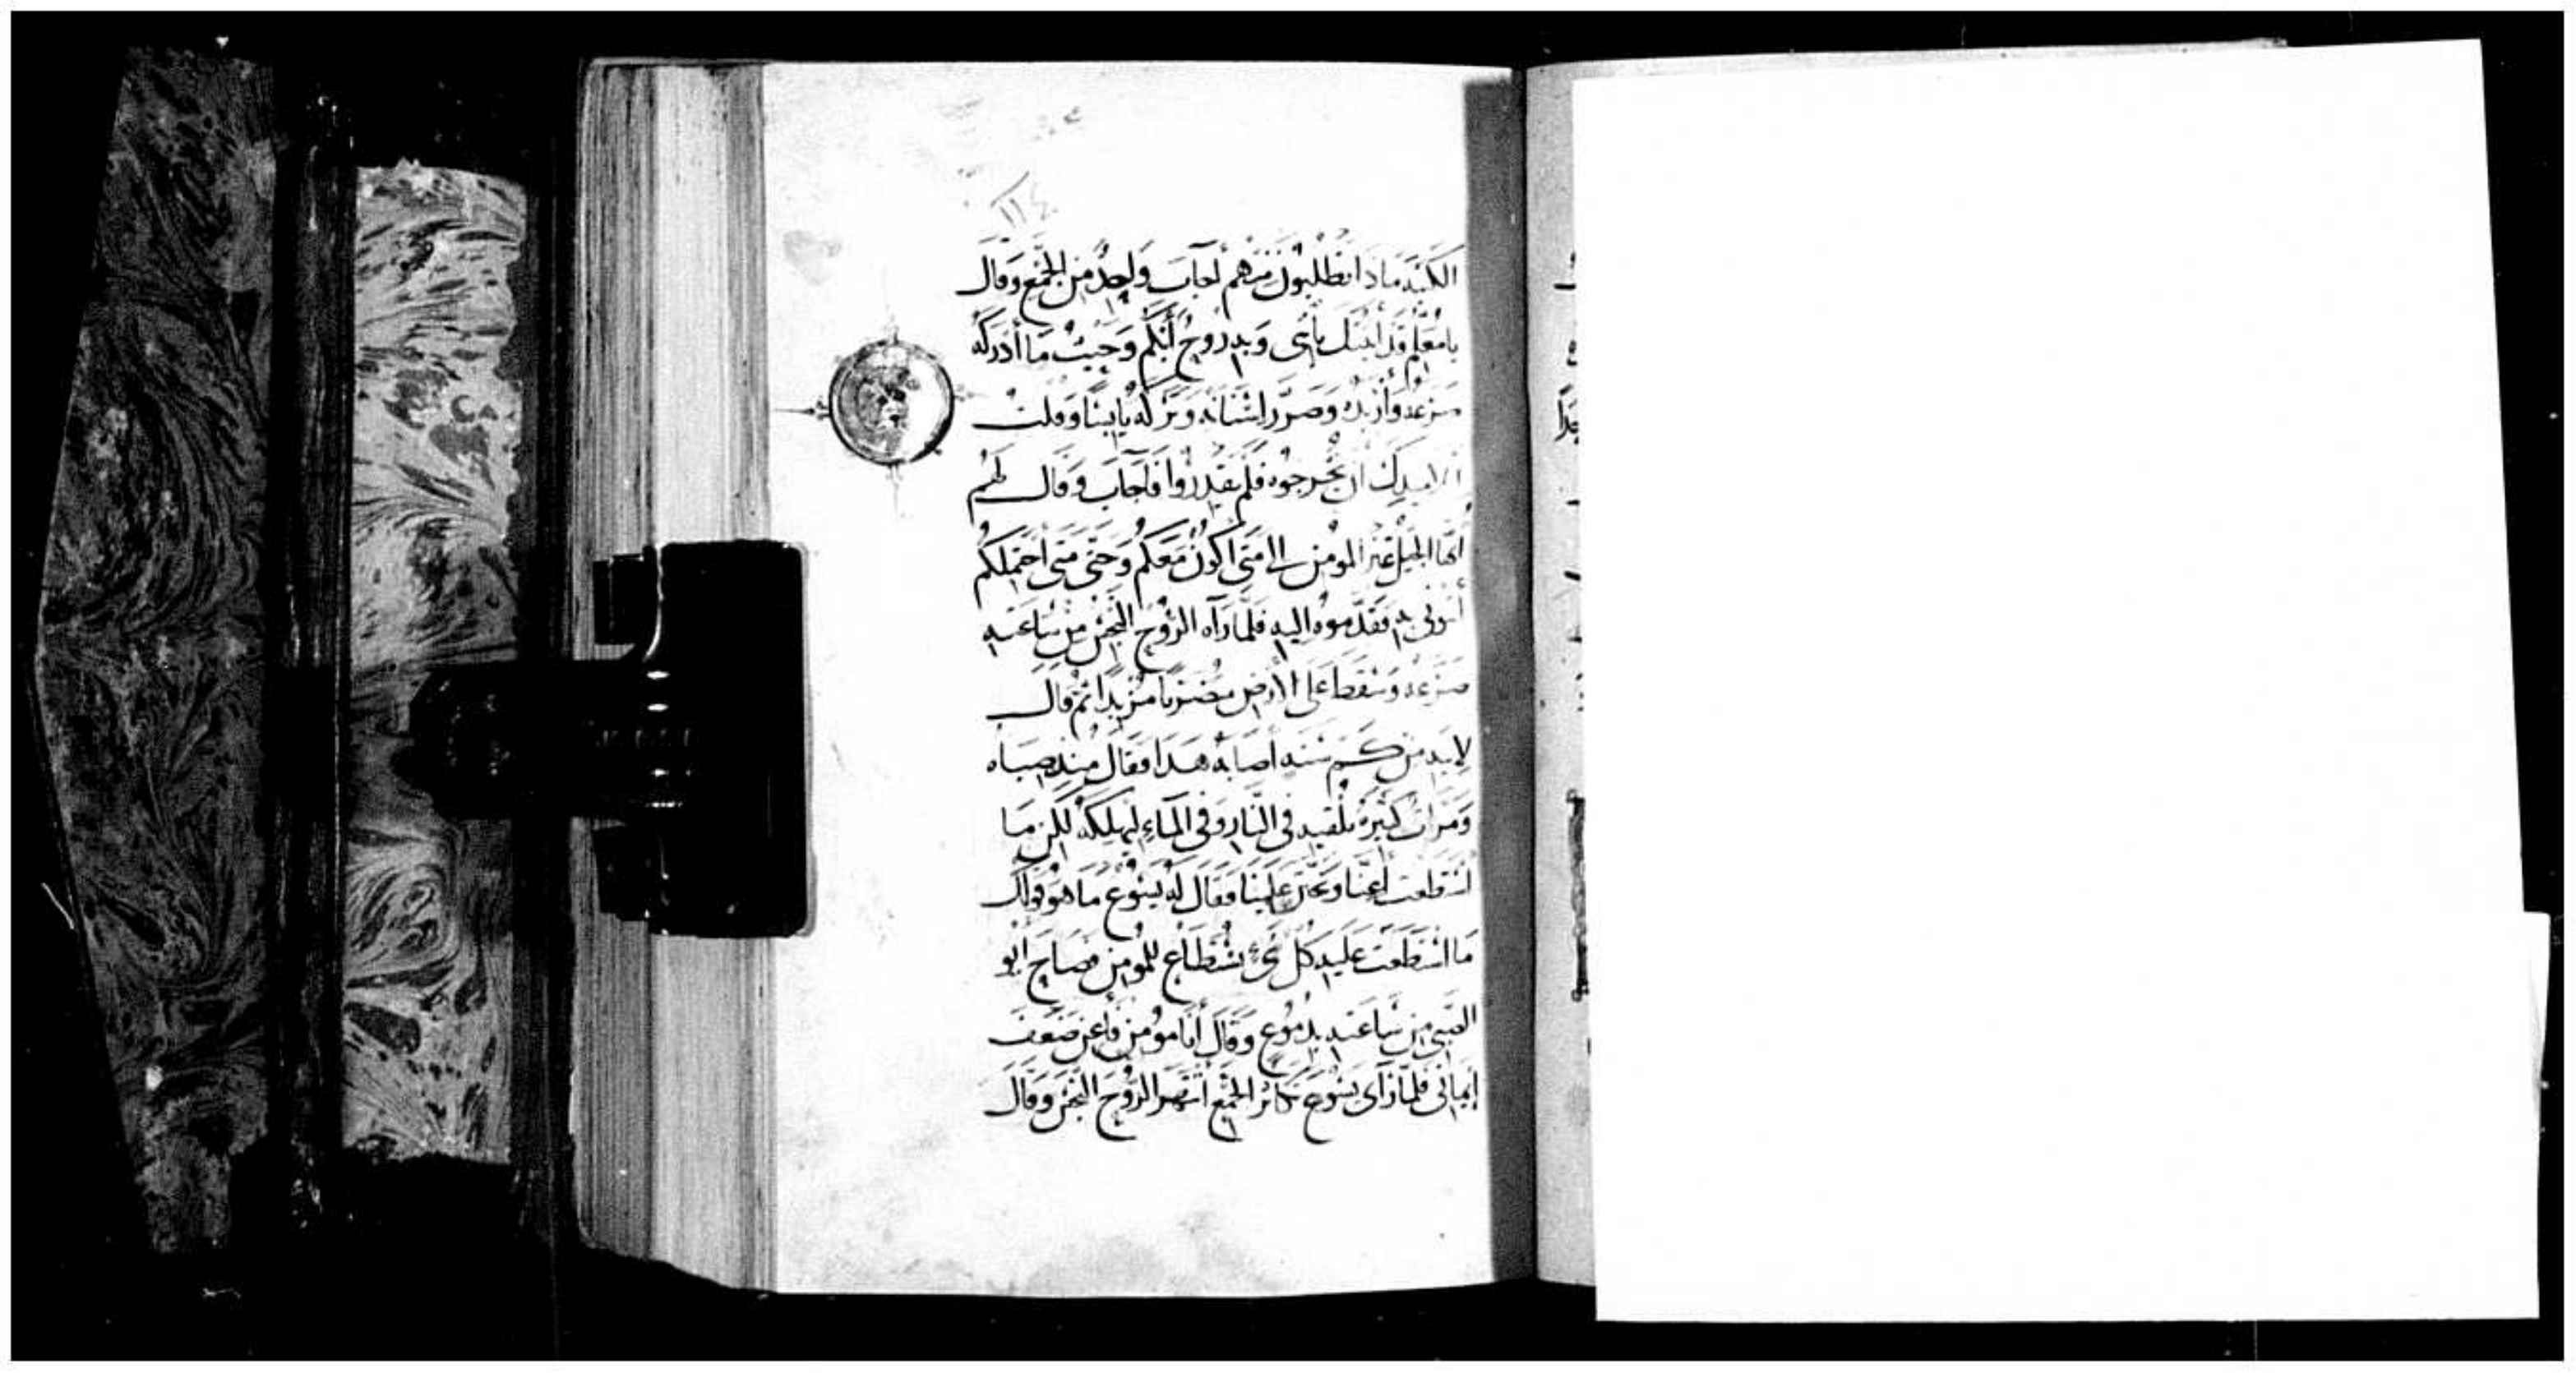 ١١٤
الكتبه ماذا تطلبون منهم أجاب واحد من الجمع وقال
يا معلم قد أتيتك بابني وبه روح أبكم وحيث ما أدركه
صرعه وأزبده وصرر اسنانه وتركه يابسًا وقلت
لتلاميذك أن يخرجوه فلم يقدروا فأجاب وقال لهم
أيها الجيل غير المومن الى متى أكون معكم وحتى متى أحتملكم
أتوني به فقدموه اليه فلما رآه الروح النجس من ساعته
صرعه وسقط على الأرض مضطربا مزبدًا ثم قال
لابيه من كم سنه أصابه هذا فقال منذ صباه
ومرات كثيرة تلقيه في النار وفي الماء ليهلكه لكن ما
استطعت أعنا وتحنن علينا فقال له يسوع ما هو قولك
ما استطعت عليه كل شيء يستطاع للمومن فصاح ابو
الصبي من ساعته بدموع وقال أنا مومن فأعن ضعف
إيماني فلما رآى يسوع تكاثر الجمع أنتهر الروح النجس وقال